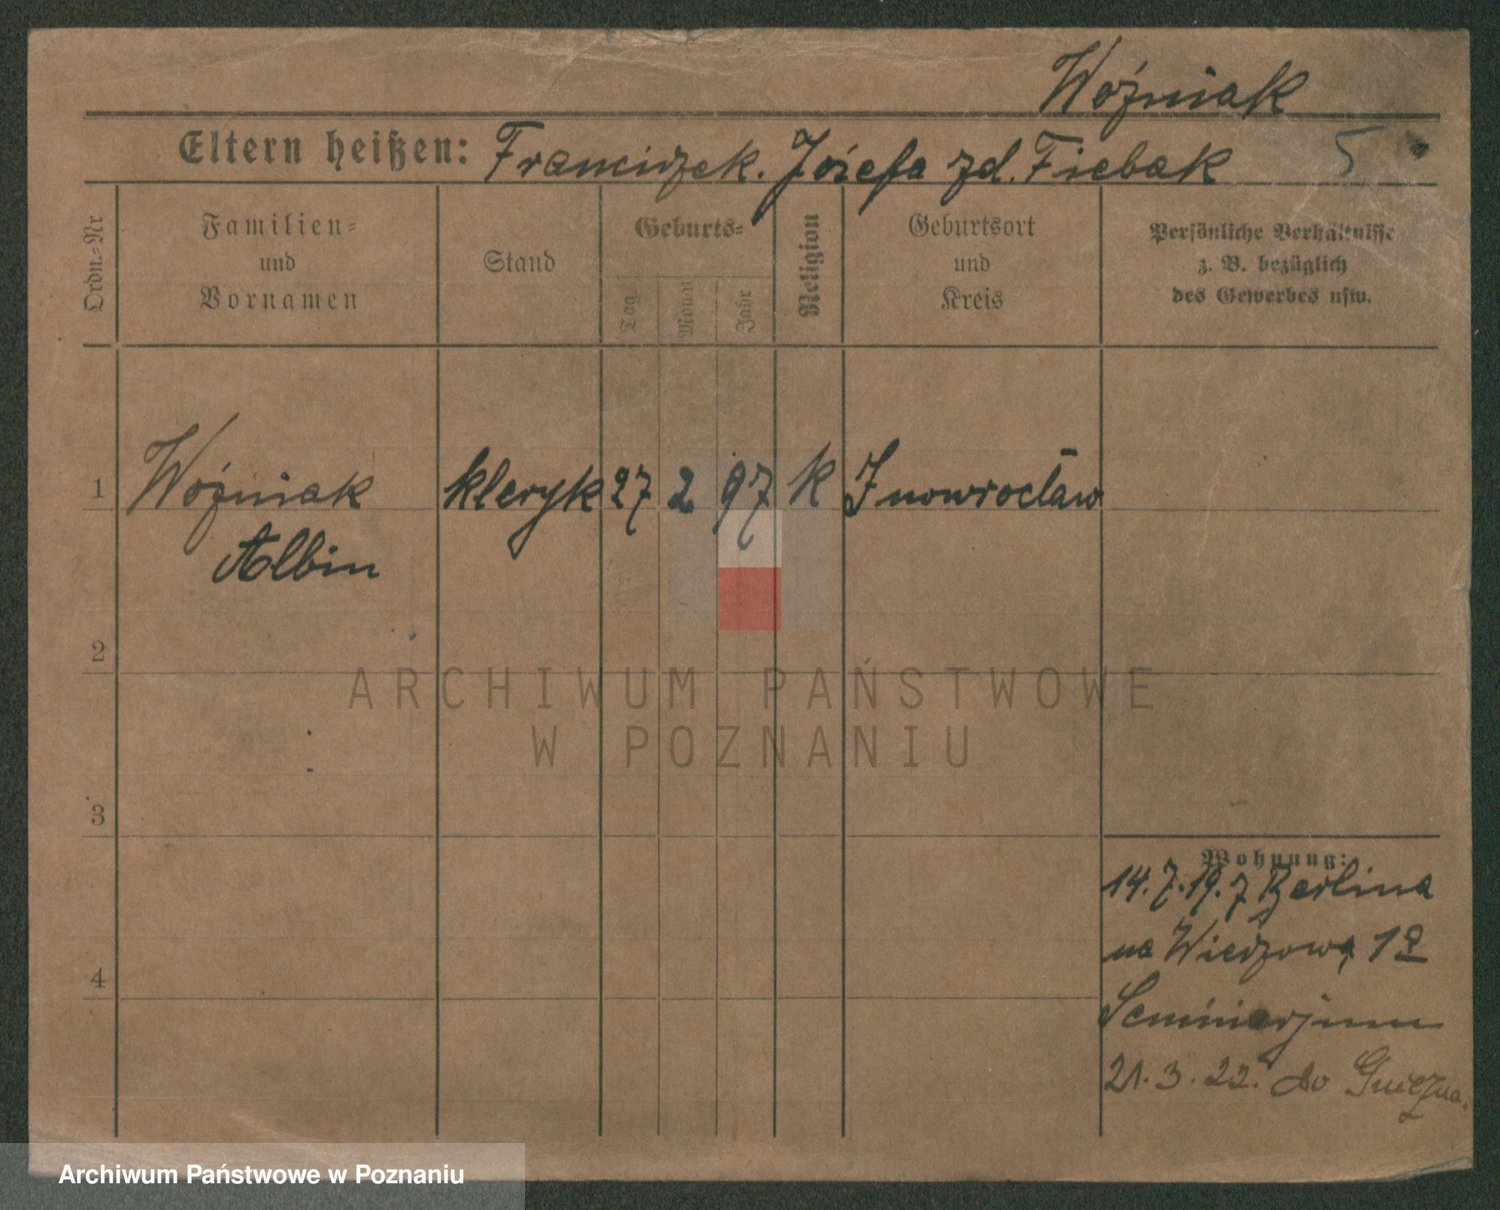 Woźniak
Eltern heißen: Franciszek. Józefa zd. Fiebak 5
Ordn.-Nr
Familien-
und
Vornamen
Stand
Geburts-
Tag
Monat
Jahr
Religion
Geburtsort
und
Kreis
Persönliche Verhältnisse
z. B. bezüglich
des Gewerbes usw.
1 Woźniak kleryk 27 2 97 k Inowrocław
Albin
2
ARCHIWUM PAŃSTWOWE
W POZNANIU
3
Wohnung:
14.7.19. z Berlina
na Wieżową 12
Seminarjum
4
21.3.22. do Gniezna.
Archiwum Państwowe w Poznaniu